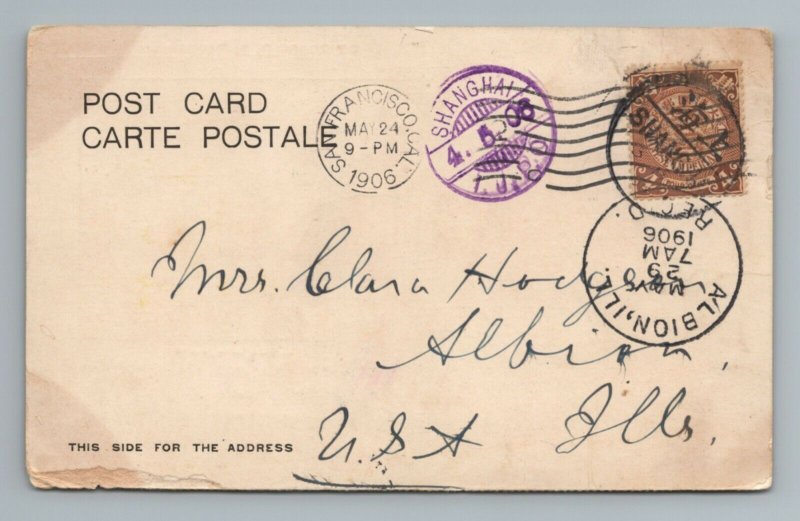 POST CARD
CARTE POSTALE
SAN FRANCISCO, CAL.
MAY 24
9-PM
1906
SHANGHAI
4. 5. 06
I.J.P.O.
Mrs. Clara Hodgson
Albion,
Ills,
USA
ALBION, ILL.
MAY
29
7AM
1906
REC'D.
THIS SIDE FOR THE ADDRESS